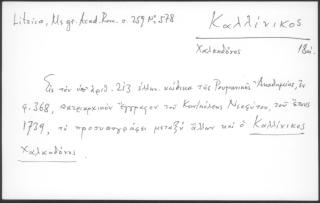 Litzica, Ms gr. Acad. Rom. σ. 259 Nº 578
Καλλίνικος
Χαλκηδόνος 18αι.
Εἰς τὸν ὑπ' ἀριθ. 213 ἑλλην. κώδικα τῆς Ρουμανικῆς Ἀκαδημίας, ἐν
φ. 368, πατριαρχικὸν ἔγγραφον τοῦ Κων/πόλεως Νεοφύτου, τοῦ ἔτους
1739, τὸ προσυπογράφει μεταξὺ ἄλλων καὶ ὁ Καλλίνικος
Χαλκηδόνος.